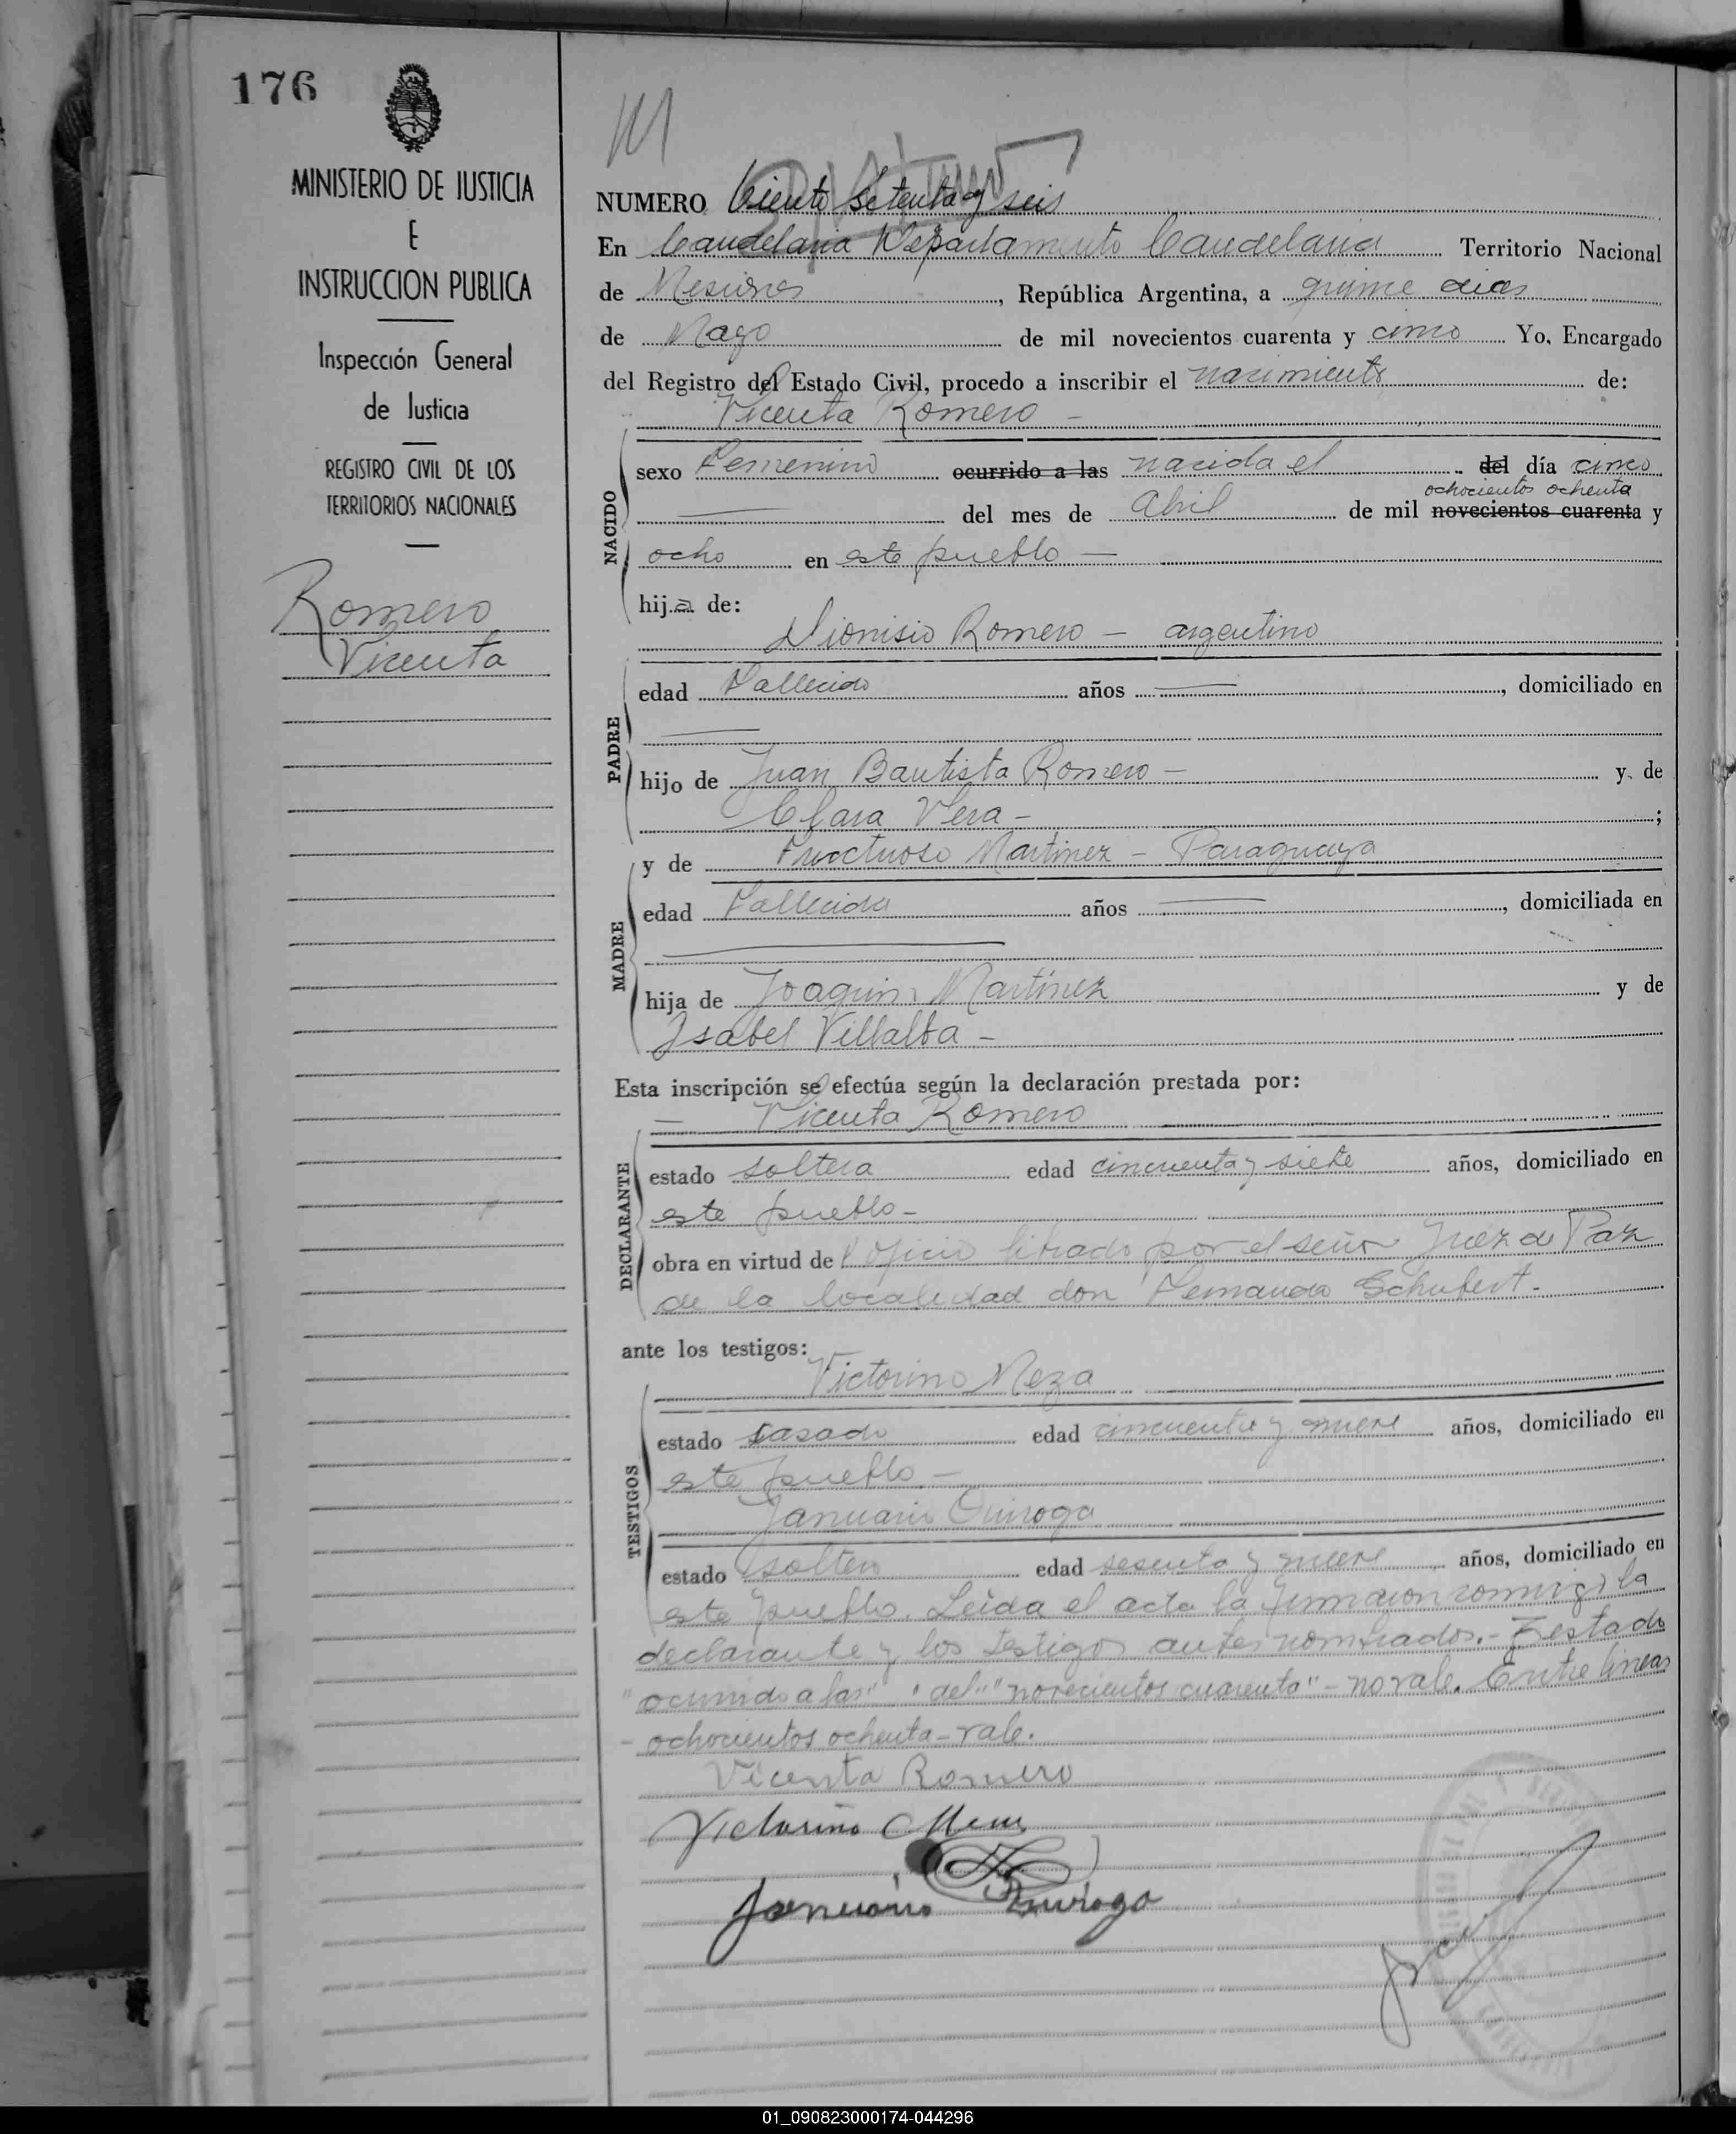 176
MINISTERIO DE JUSTICIA
E
INSTRUCCION PUBLICA
Inspección General
de Justicia
REGISTRO CIVIL DE LOS
TERRITORIOS NACIONALES
Romero
Vicenta
NUMERO Ciento setenta y seis
En Candelaria Departamento Candelaria Territorio Nacional
de Misiones, República Argentina, a quince dias
de Mayo de mil novecientos cuarenta y cinco Yo, Encargado
del Registro del Estado Civil, procedo a inscribir el nacimiento de:
Vicenta Romero -
NACIDO
sexo Femenino ocurrido a las nacida el del día cinco
ochocientos ochenta
del mes de Abril de mil novecientos cuarenta y
ocho en este pueblo -
hija de:
Dionisio Romero - argentino
PADRE
edad Fallecido años , domiciliado en
hijo de Juan Bautista Romero - y de
Clara Vera - ;
MADRE
y de Fructuosa Martinez - Paraguaya
edad Fallecida años , domiciliada en
hija de Joaquin Martinez y de
Isabel Villalba -
Esta inscripción se efectúa según la declaración prestada por:
- Vicenta Romero
DECLARANTE
estado soltera edad cincuenta y siete años, domiciliado en
este pueblo -
obra en virtud de oficio librado por el señor Juez de Paz
de la localidad don Fernando Schubert.
ante los testigos:
TESTIGOS
Victorino Meza
estado casado edad cincuenta y nueve años, domiciliado en
este pueblo -
Januario Quiroga
estado soltero edad sesenta y nueve años, domiciliado en
este pueblo. Leida el acta la firmaron conmigo la
declarante y los testigos antes nombrados.- Testado
"ocurrido a las" "del" "novecientos cuarenta" - no vale. Entre lineas
- ochocientos ochenta - vale.
Vicenta Romero
Victorino Meza
Januario Quiroga
01_090823000174-044296